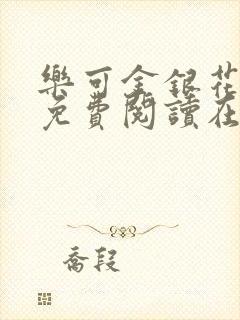 樂可金銀花
免費閱讀在
喬段